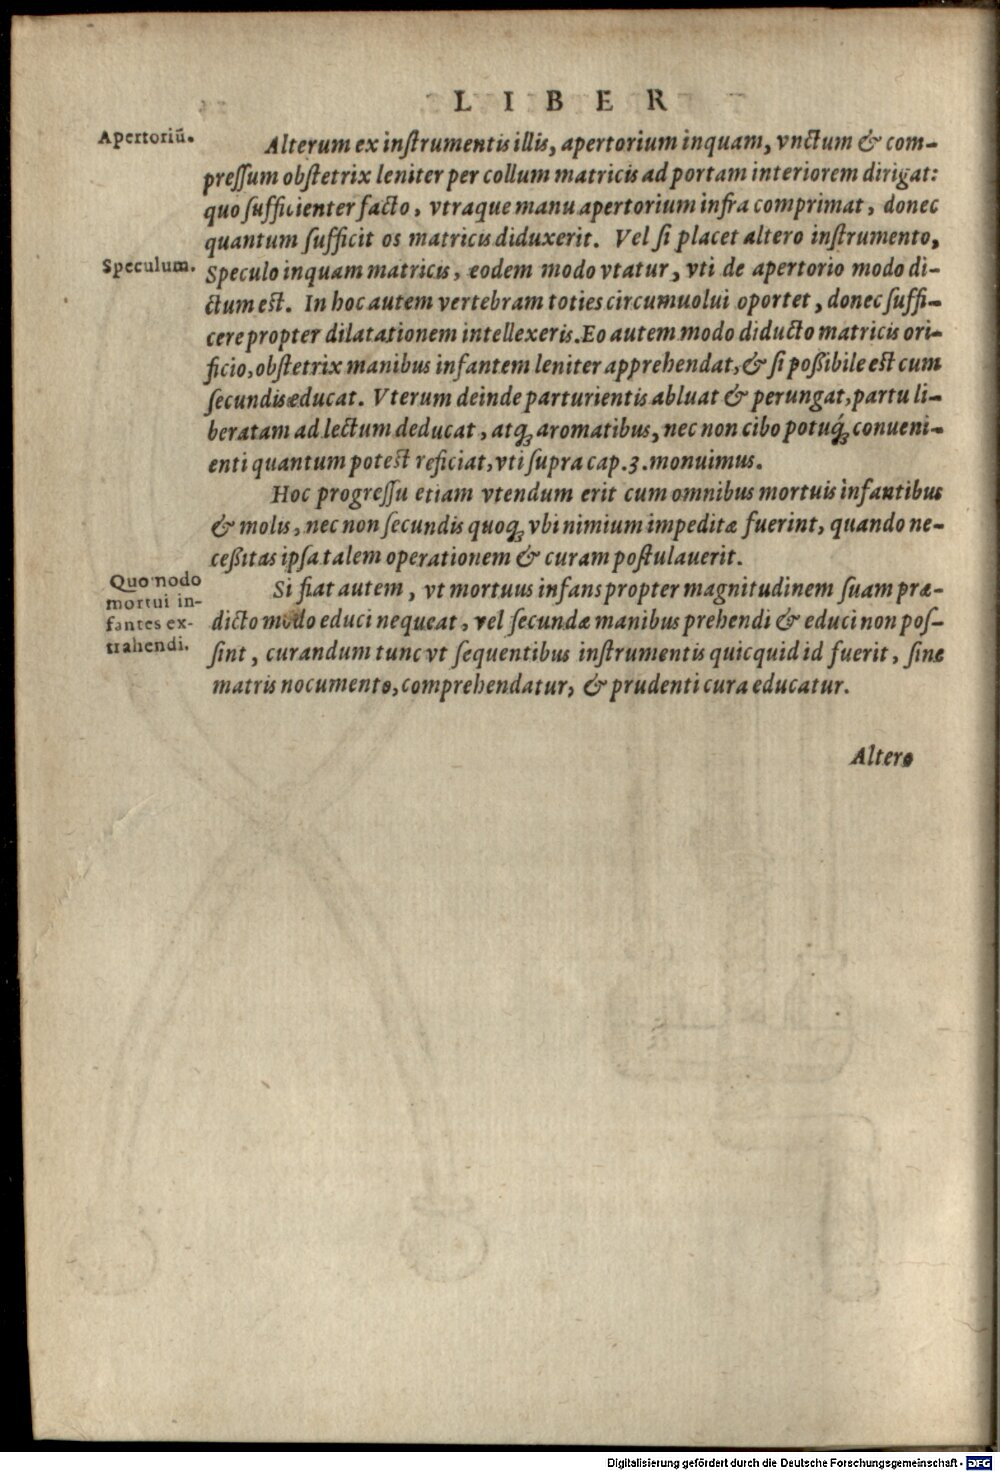 LIBER
Apertoriũ.
Alterum ex inſtrumentis illis, apertorium inquam, vnctum & com-
preſſum obſtetrix leniter per collum matricis ad portam interiorem dirigat:
quo ſufficienter facto, vtraque manu apertorium infra comprimat, donec
quantum ſufficit os matricis diduxerit. Vel ſi placet altero inſtrumento,
Speculum.
Speculo inquam matricis, eodem modo vtatur, vti de apertorio modo di-
ctum est. In hoc autem vertebram toties circumuolui oportet, donec ſuffi-
cere propter dilatationem intellexeris. Eo autem modo diducto matricis ori-
ficio, obſtetrix manibus infantem leniter apprehendat, & ſi poßibile est cum
ſecundis educat. Vterum deinde parturientis abluat & perungat, partu li-
beratam ad lectum deducat, atqꝫ aromatibus, nec non cibo potuqꝫ́ conueni-
enti quantum potest reficiat, vti ſupra cap. 3. monuimus.
Hoc progreſſu etiam vtendum erit cum omnibus mortuis infantibus
& molis, nec non ſecundis quoqꝫ vbi nimium impeditæ fuerint, quando ne-
ceßitas ipſa talem operationem & curam poſtulauerit.
Quonodo
mortui in-
fantes ex-
trahendi.
Si fiat autem, vt mortuus infans propter magnitudinem ſuam præ-
dicto modo educi nequeat, vel ſecundæ manibus prehendi & educi non poſ-
ſint, curandum tunc vt ſequentibus inſtrumentis quicquid id fuerit, ſine
matris nocumento, comprehendatur, & prudenti cura educatur.
Altero
Digitalisierung gefördert durch die Deutsche Forschungsgemeinschaft - DFG